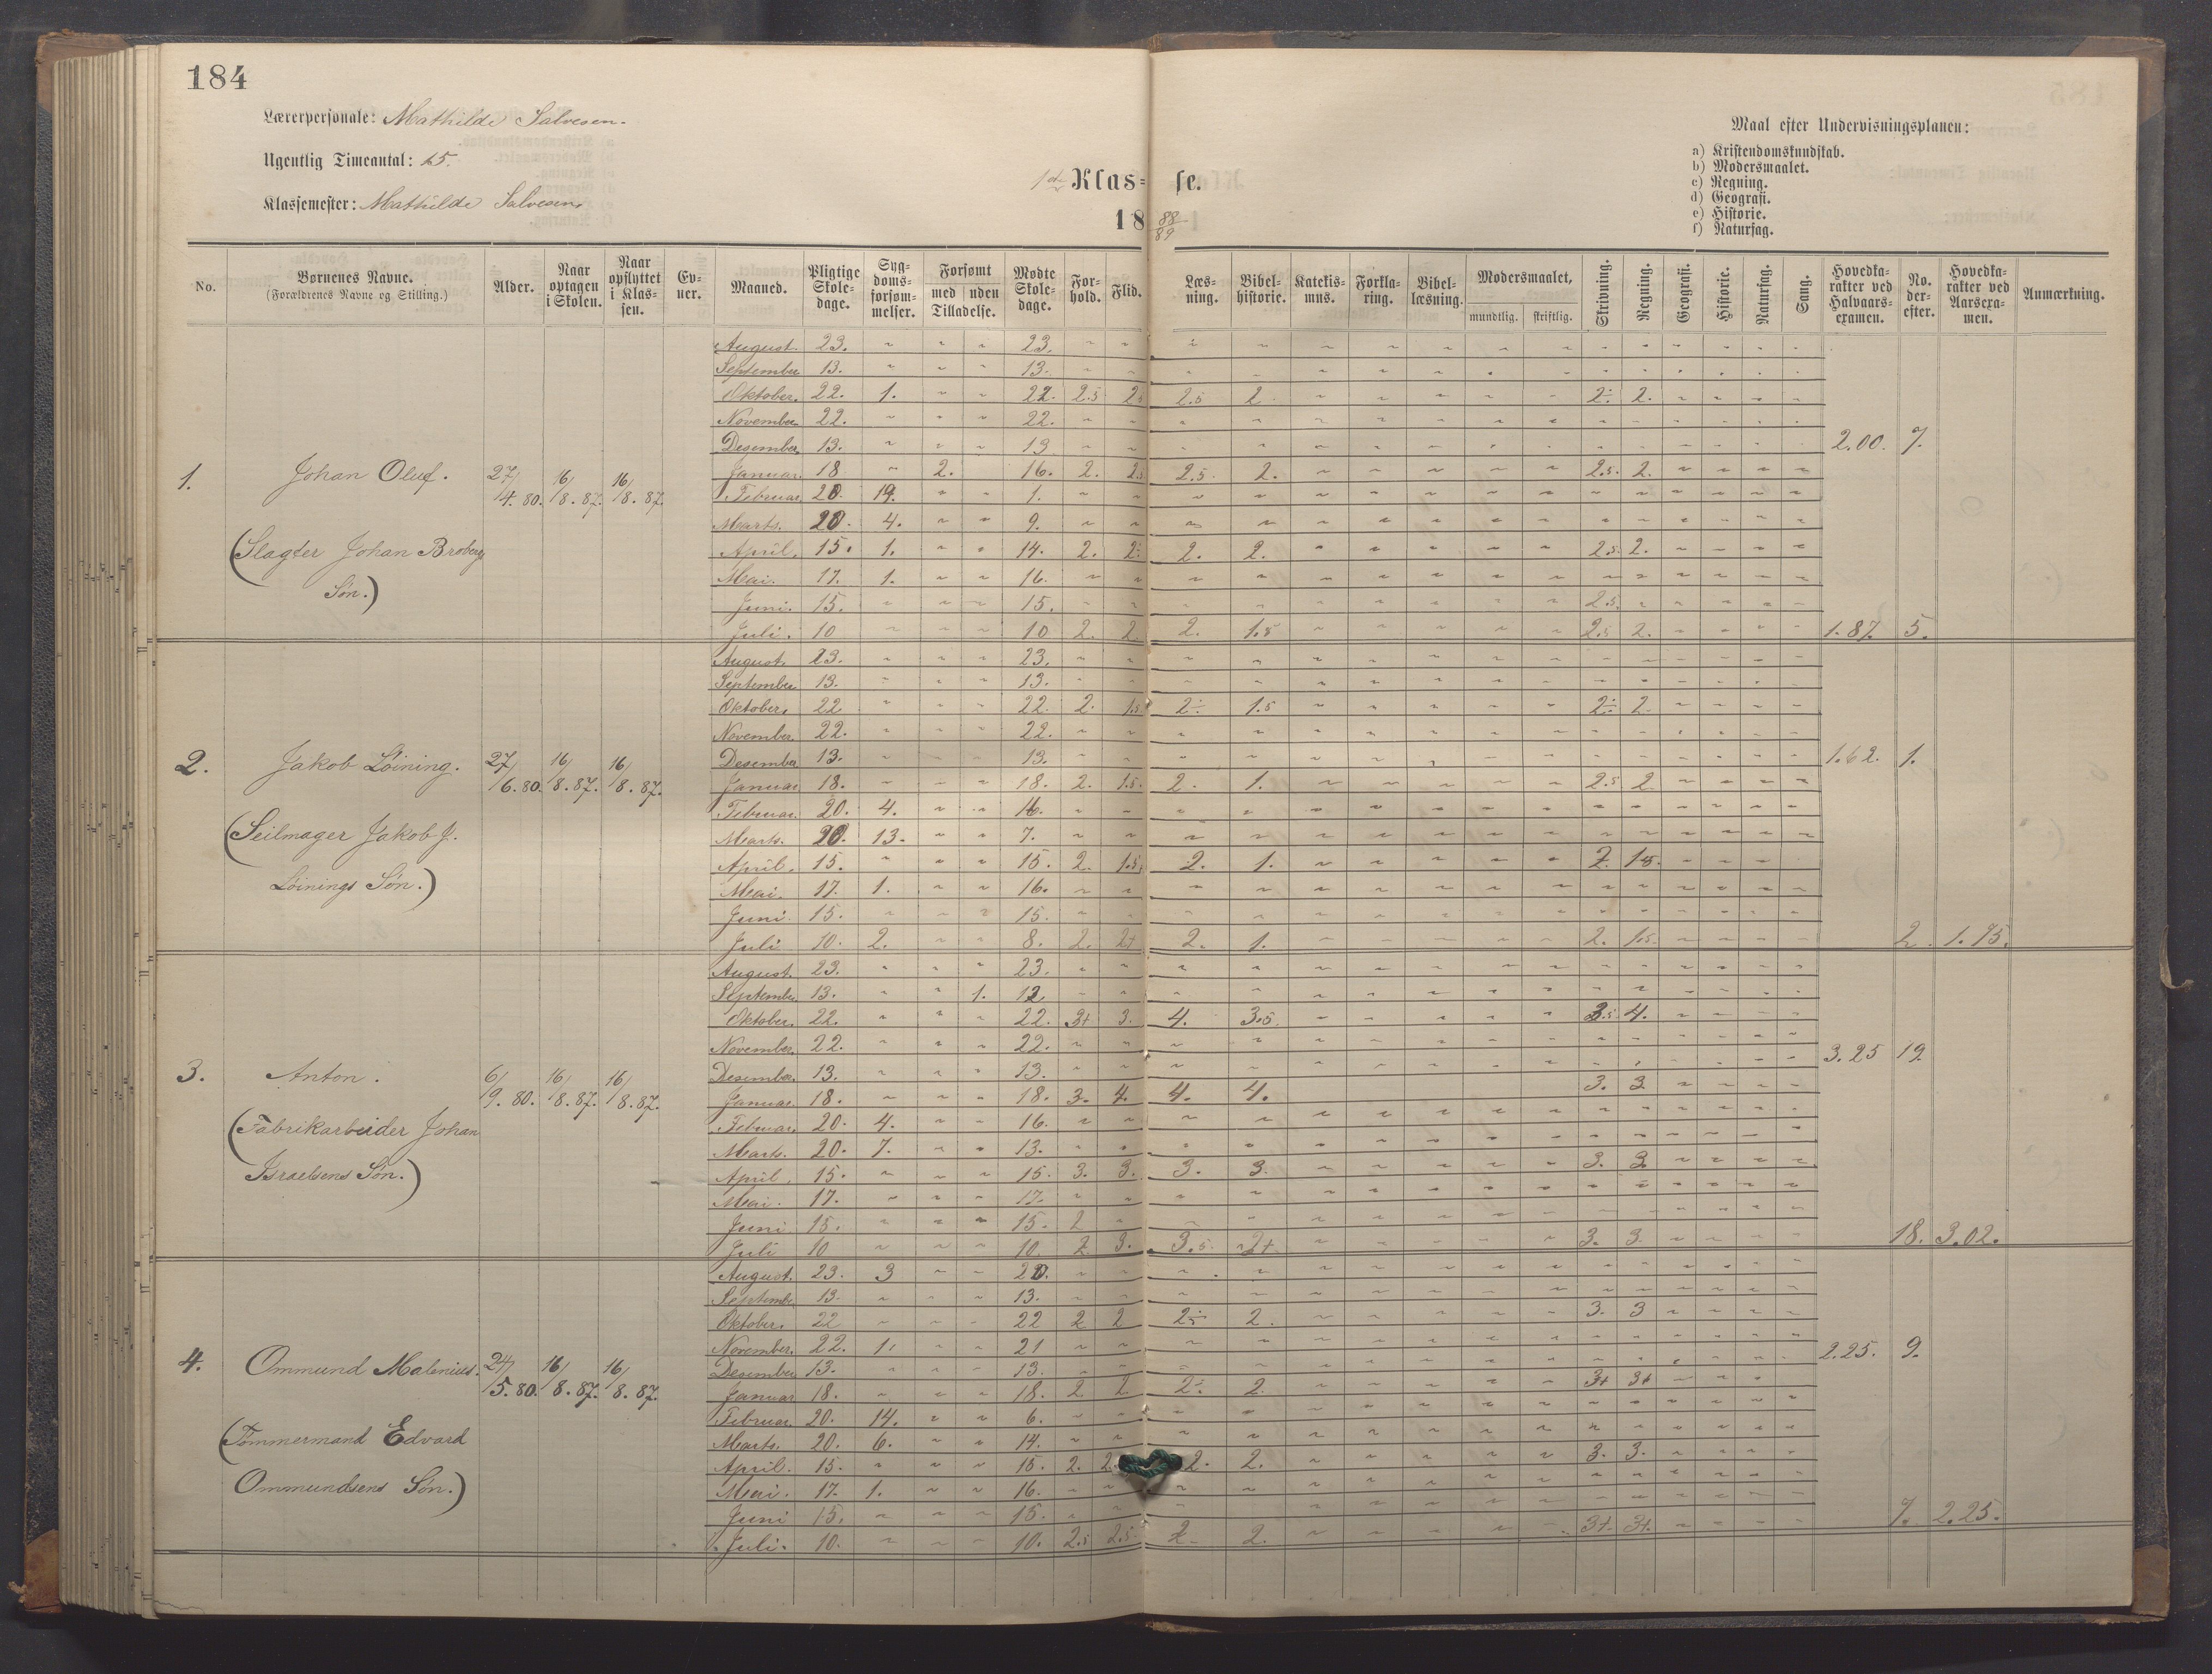 184
Lærerpersonale: Mathilde Salvesen.
Ugentlig Timeantal: 25.
Klassemester: Mathilde Salvesen.
1ste Klas= se.
18 88/89
Maal efter Undervisningsplanen:
a) Kristendomskundskab.
b) Modersmaalet.
c) Regning.
d) Geografi.
e) Historie.
f) Naturfag.
No. Børnenes Navne. (Forældrenes Navne og Stilling.) Alder. Naar optagen i Skolen. Naar opflyttet i Klassen. Evner. Maaned. Pligtige Skoledage. Sygdomsforsømmelser. Forsømt med uden Tilladelse. Mødte Skoledage. Forhold. Flid. Læsning. Bibelhistorie. Katekismus. Forklaring. Bibellæsning. Modersmaalet, mundtlig. skriftlig. Skrivning. Regning. Geografi. Historie. Naturfag. Sang. Hovedkarakter ved Halvaarsexamen. No. derefter. Hovedkarakter ved Aarsexamen. Anmærkning.
1. Johan Oluf. 27/4.80. 16/8.87. 16/8.87.
(Slagter Johan Brobergs
Søn.)
August. 23. " " " 23.
September 13. " " " 13.
Oktober. 22. 1. " " 22. 2.5 2.5 2.5 2. 2÷ 2.
November. 22. " " " 22.
Desember. 13. " " " 13 2.00. 7.
Januar. 18 " 2. 16. 2. 2.5 2.5. 2. 2.5. 2.
Februar. 20. 19. " " 1.
Marts. 20. 4. " " 9.
April. 15. 1. " " 14. 2. 2÷ 2. 2. 2.5. 2.
Mai. 17. 1. " " 16.
Juni. 15. " " " 15. 2.5.
Juli. 10 " " " 10 2. 2. 2. 1.5 2.5 2. 1.87. 5.
2. Jakob Löining. 27/6.80. 16/8.87. 16/8.87.
(Seilmager Jakob J.
Löinings Søn.)
August. 23. " " " 23.
September 13. " " " 13.
Oktober. 22 " " " 22. 2. 1.5 2÷ 1.5 2÷ 2
November. 22. " " " 22.
Desember 13. " " " 13. 1.62. 1.
Januar 18. " " " 18. 2. 1.5. 2. 1. 2.5 2
Februar. 20. 4. " " 16.
Marts. 20. 13. " " 7.
April. 15. " " " 15. 2. 1.5 2. 1. 2. 1.5.
Mai. 17. 1. " " 16.
Juni. 15. " " " 15.
Juli 10. 2. " " 8. 2. 2+ 2. 1. 2. 1.5. 2. 1.75.
3. Anton. 6/9.80. 16/8.87. 16/8.87.
(Fabrikarbeider Johan
Israelsens Søn.)
August. 23. " " " 23.
September. 13. " " 1. 12
Oktober. 22. " " " 22. 3+ 3. 4. 3.5. 3.5 4.
November. 22. " " " 22. 3.25 19.
Desember. 13. " " " 13.
Januar. 18. " " " 18. 3. 4. 4. 4. 3. 3
Februar. 20. 4. " " 16.
Marts. 20. 7. " " 13.
April. 15. " " " 15. 3. 3. 3. 3. 3. 3
Mai. 17. " " " 17.
Juni 15. " " " 15. 2
Juli 10 " " " 10. 2 3. 3.5. 2+ 3. 3 18. 3.02.
4. Ommund Malenius. 24/5.80. 16/8.87. 16/8.87.
(Tømmermand Edvard
Ommundsens Søn.)
August. 23. 3 " " 20.
Septembr. 13. " " " 13.
Oktober. 22 " " " 22 2 2 2÷ 2. 3. 3
November. 22. 1. " " 21 2.25. 9.
Desember 13. " " " 13.
Januar 18. " " " 18. 2 2 2÷ 2 3+ 3+
Februar. 20. 14. " " 6.
Marts. 20. 6. " " 14.
April. 15. " " " 15. 2. 2. 2. 2. 3. 3.
Mai. 17. 1. " " 16.
Juni 15. " " " 15.
Juli. 10. " " " 10. 2.5 2.5. 2 2. 3+ 3+. 7. 2.25.